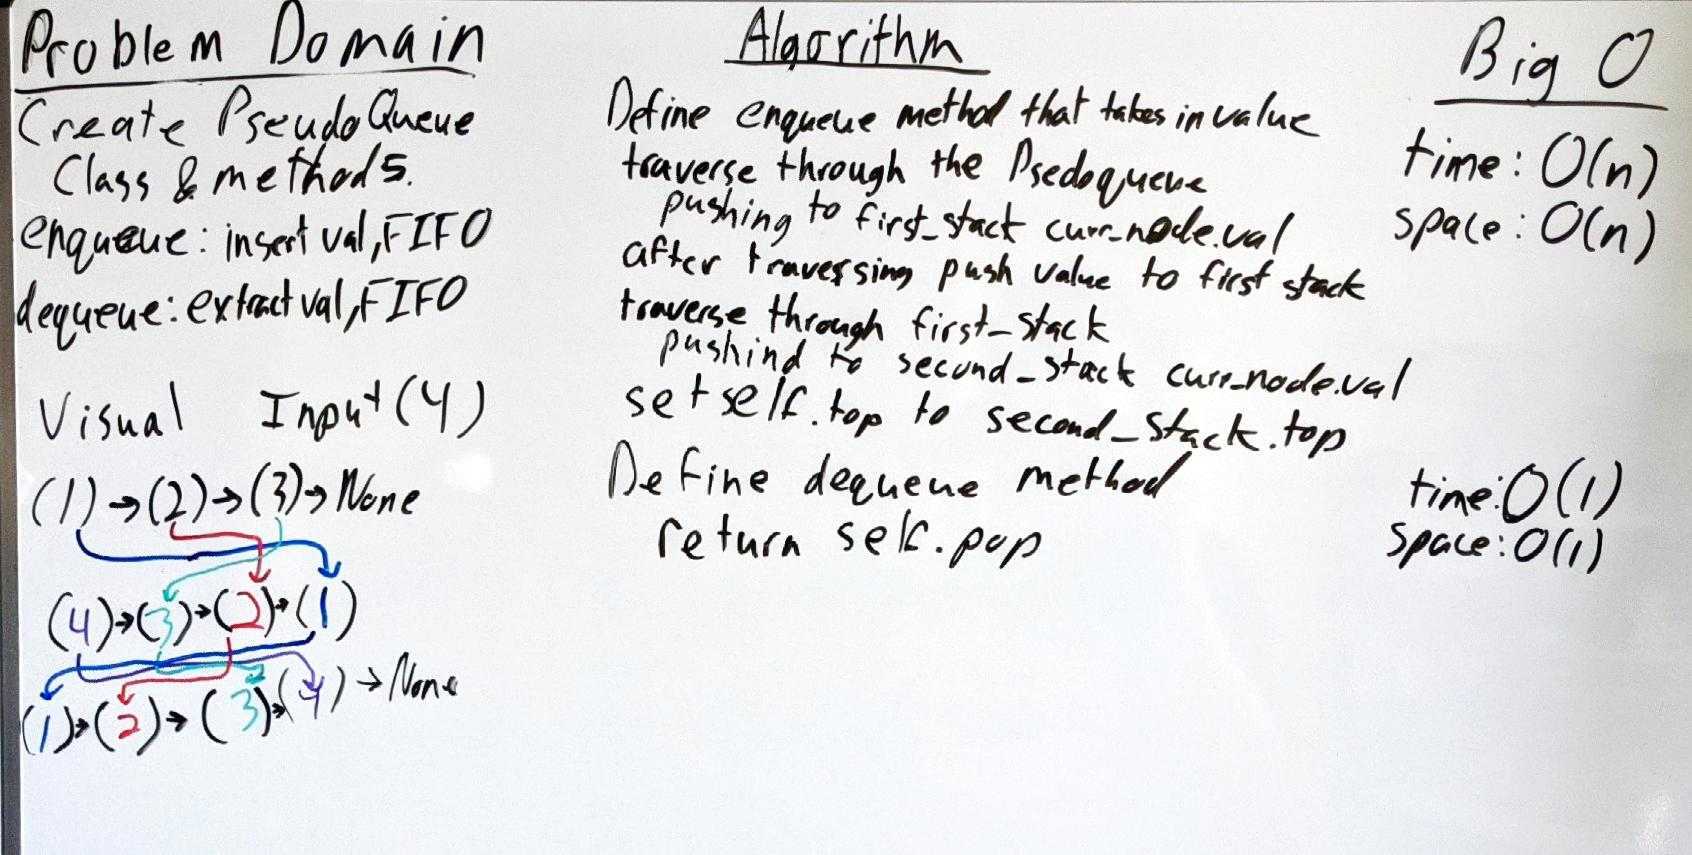 Problem Domain
Create PseudoQueue
Class & methods.
enqueue: insert val, FIFO
dequeue: extract val, FIFO
Visual Input (4)
(1) → (2) → (3) → None
(4) → (3) → (2) → (1)
(1) → (2) → (3) → (4) → None
Algorithm
Define enqueue method that takes in value
traverse through the Psedoqueue
pushing to first_stack curr_node.val
after traversing push value to first stack
traverse through first_stack
pushind to second_stack curr_node.val
set self.top to second_stack.top
Define dequeue method
return self.pop
Big O
time: O(n)
space: O(n)
time: O(1)
space: O(1)